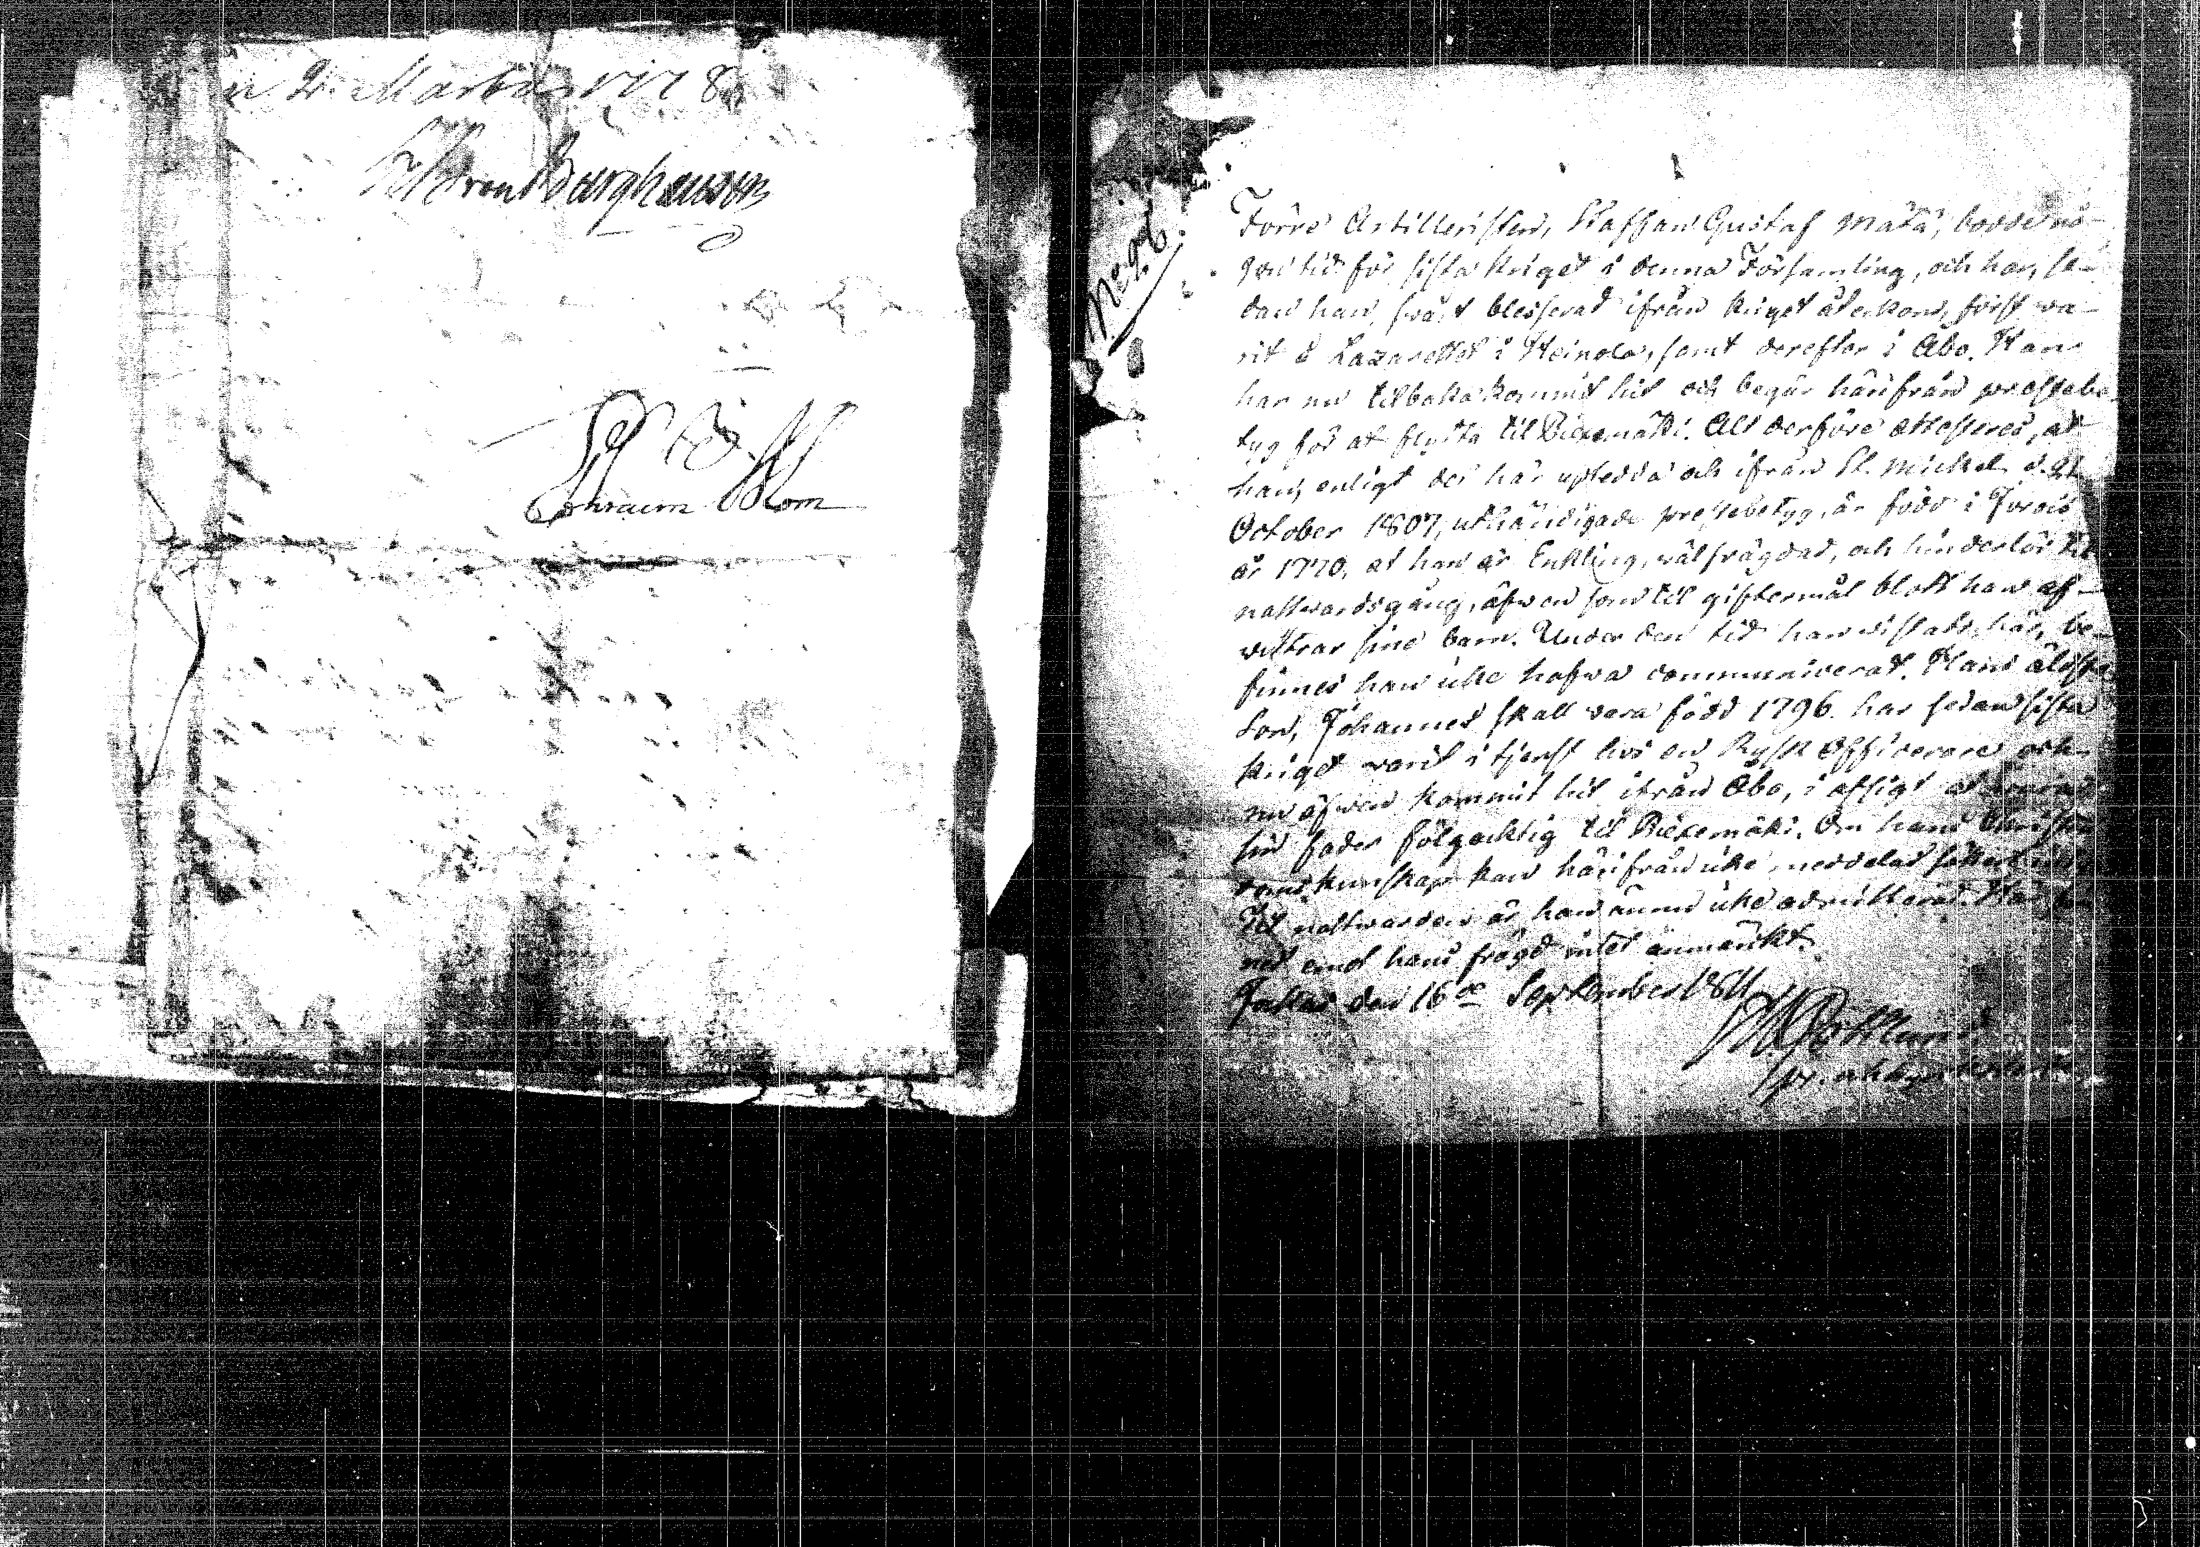 n 2. Martii 177 8
von Burghausen
Ephraim Blom
N:o 96.
Förre Artilleristen, Staffan Gustaf Mätä, bodde nå-
gon tid för sista kriget i denna Församling, och har, se-
dan han, svårt blesserad ifrån kriget återkom, först wa-
rit å Lazarettet i Heinola, samt derefter i Åbo. Han
har nu tilbaka kommit hit och begär härifrån prestebe-
tyg för at flytta til Piexemäki. Alt derföre attesteras, at
han, enligt det här uptedda och ifrån St. Michel d. 21
October 1807, uthändigade prestebetyg, är född i Jorois
år 1770, at han är Enkling, välfrägdad, och hinderlös til
nattwardsgång, äfwen som til giftermål blott han af-
vittrar sine barn. Under den tid han vistats här, be-
finnes han icke hafwa communicerat. Hans äldsta
Son, Johannes skall vara född 1796. har sedan sista
kriget varit i tjenst hos en Rysk Officerare och
nu äfwen kommit hit ifrån Åbo, i afsigt at
sin fader följacktig til Piexemäki. Om hans Christen-
doms kunskap kan härifrån icke meddelas säkert
Til nattwarden är han ännu icke admitterad. Har
mot hans frägd intet anmärkt.
den 16de September 1811